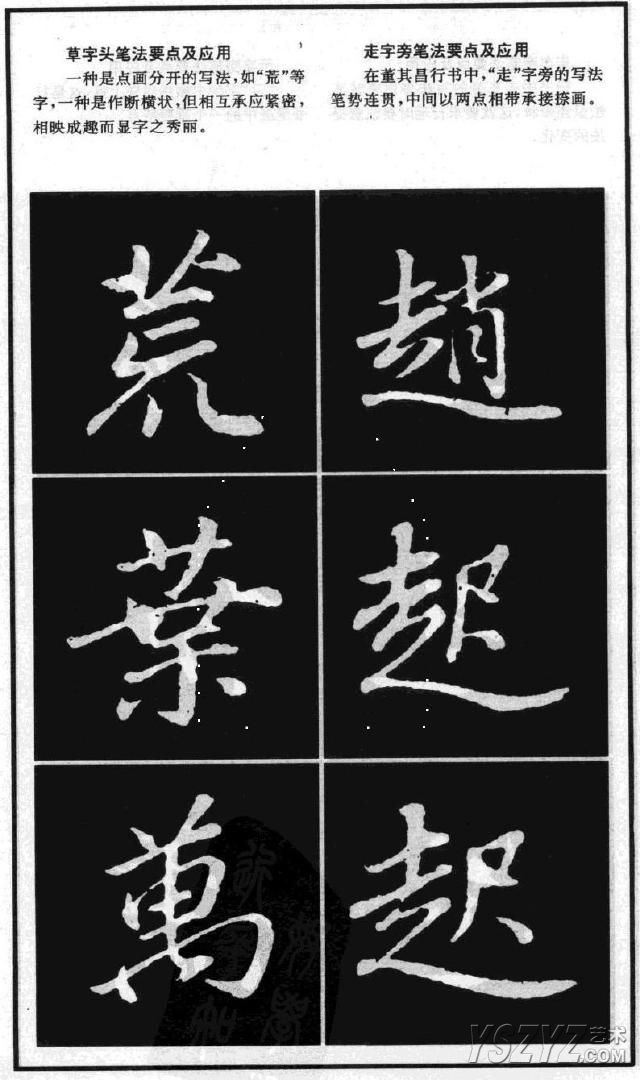 草字头笔法要点及应用
一种是点画分开的写法，如“荒”等
字，一种是作断横状，但相互承应紧密，
相映成趣而显字之秀丽。
走字旁笔法要点及应用
在董其昌行书中，“走”字旁的写法
笔势连贯，中间以两点相带承接捺画。
荒
葉
萬
趙
起
起
YSZYZ艺术
.COM